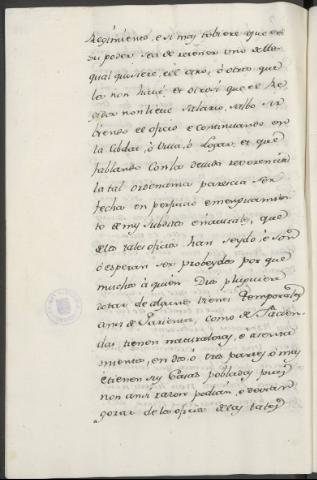 Regimiento, e si mas tobiere que en
su poder sea de retener uno dellos
qual quisiere, e el otro, ó otros que
los non haya et otrosi que el Re
gidor non lieve Salario, salbo sir
biendo el oficio e continuando en
la Cibdat, ó Villa, ó Logar, et que
fablando con la devida reverencia
la tal ordenanza parescia ser
fecha en perjuicio e menguamien
to de mis subditos e naturales, que
de los tales oficios han seydo, é son
ó esperan ser probeydos por que
muchos á quien Dios plugo en
dotar de algunos vienes temporales
ansi de Parientes como de Facien
das tienen naturalezas, é asenta
mientos, en dos ó tres partes ó mas
é tienen sus Casas pobladas pues
non ansi razon podian, e devian
gozar de los oficios de las tales